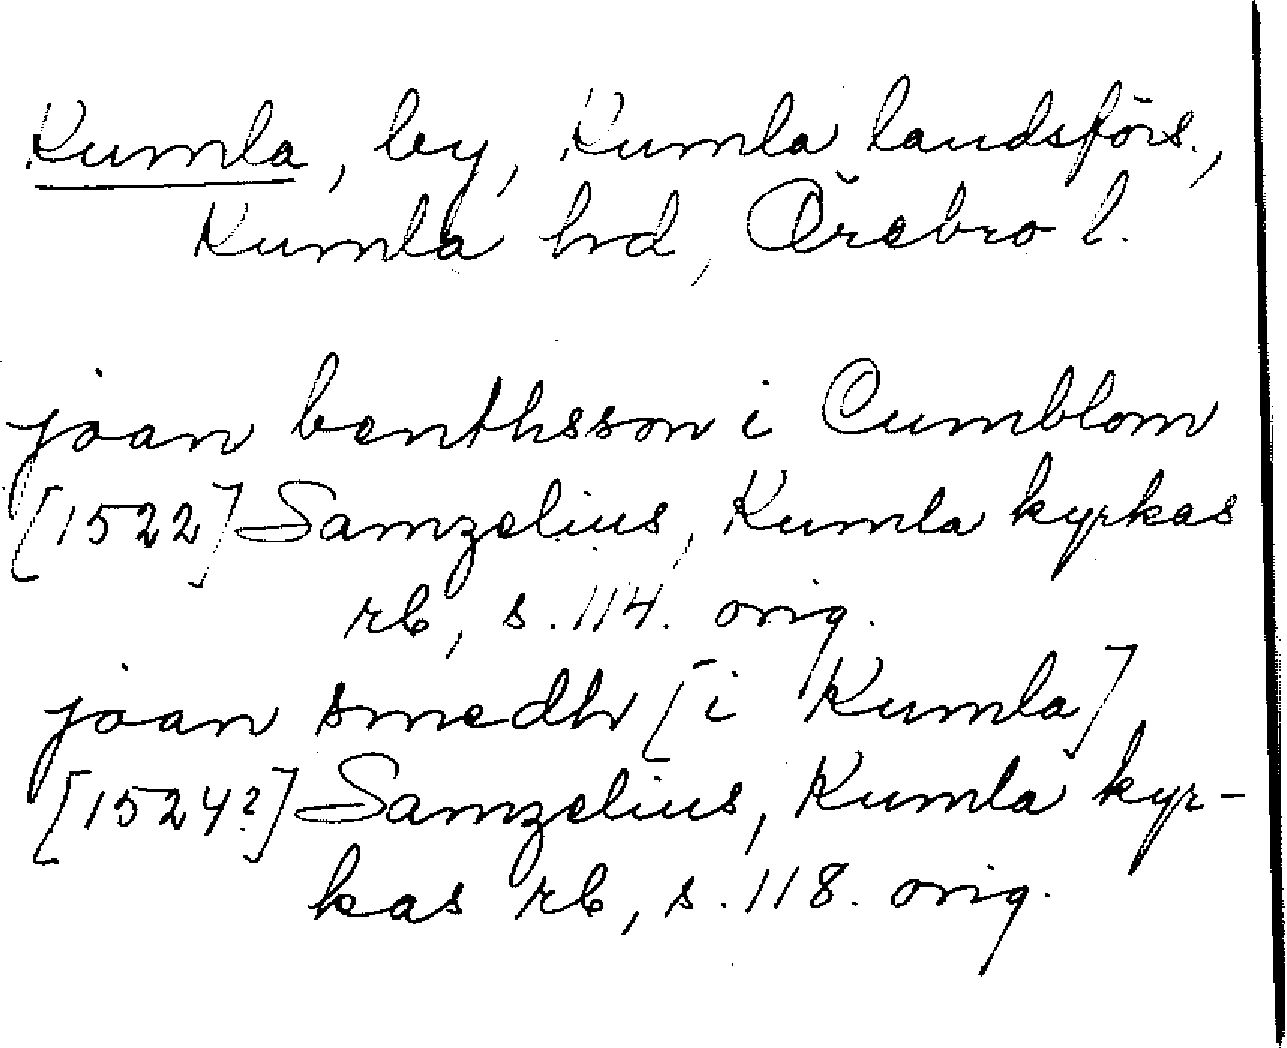 Kumla, by, Kumla landsförs.,
Kumla hd, Örebro l.
joan benthsson i Cumblom
[1522] Samzelius, Kumla kyrkas
rb, s. 114. orig.
joan smedh [i Kumla]
[1524?] Samzelius, Kumla kyr-
kas rb, s. 118. orig.